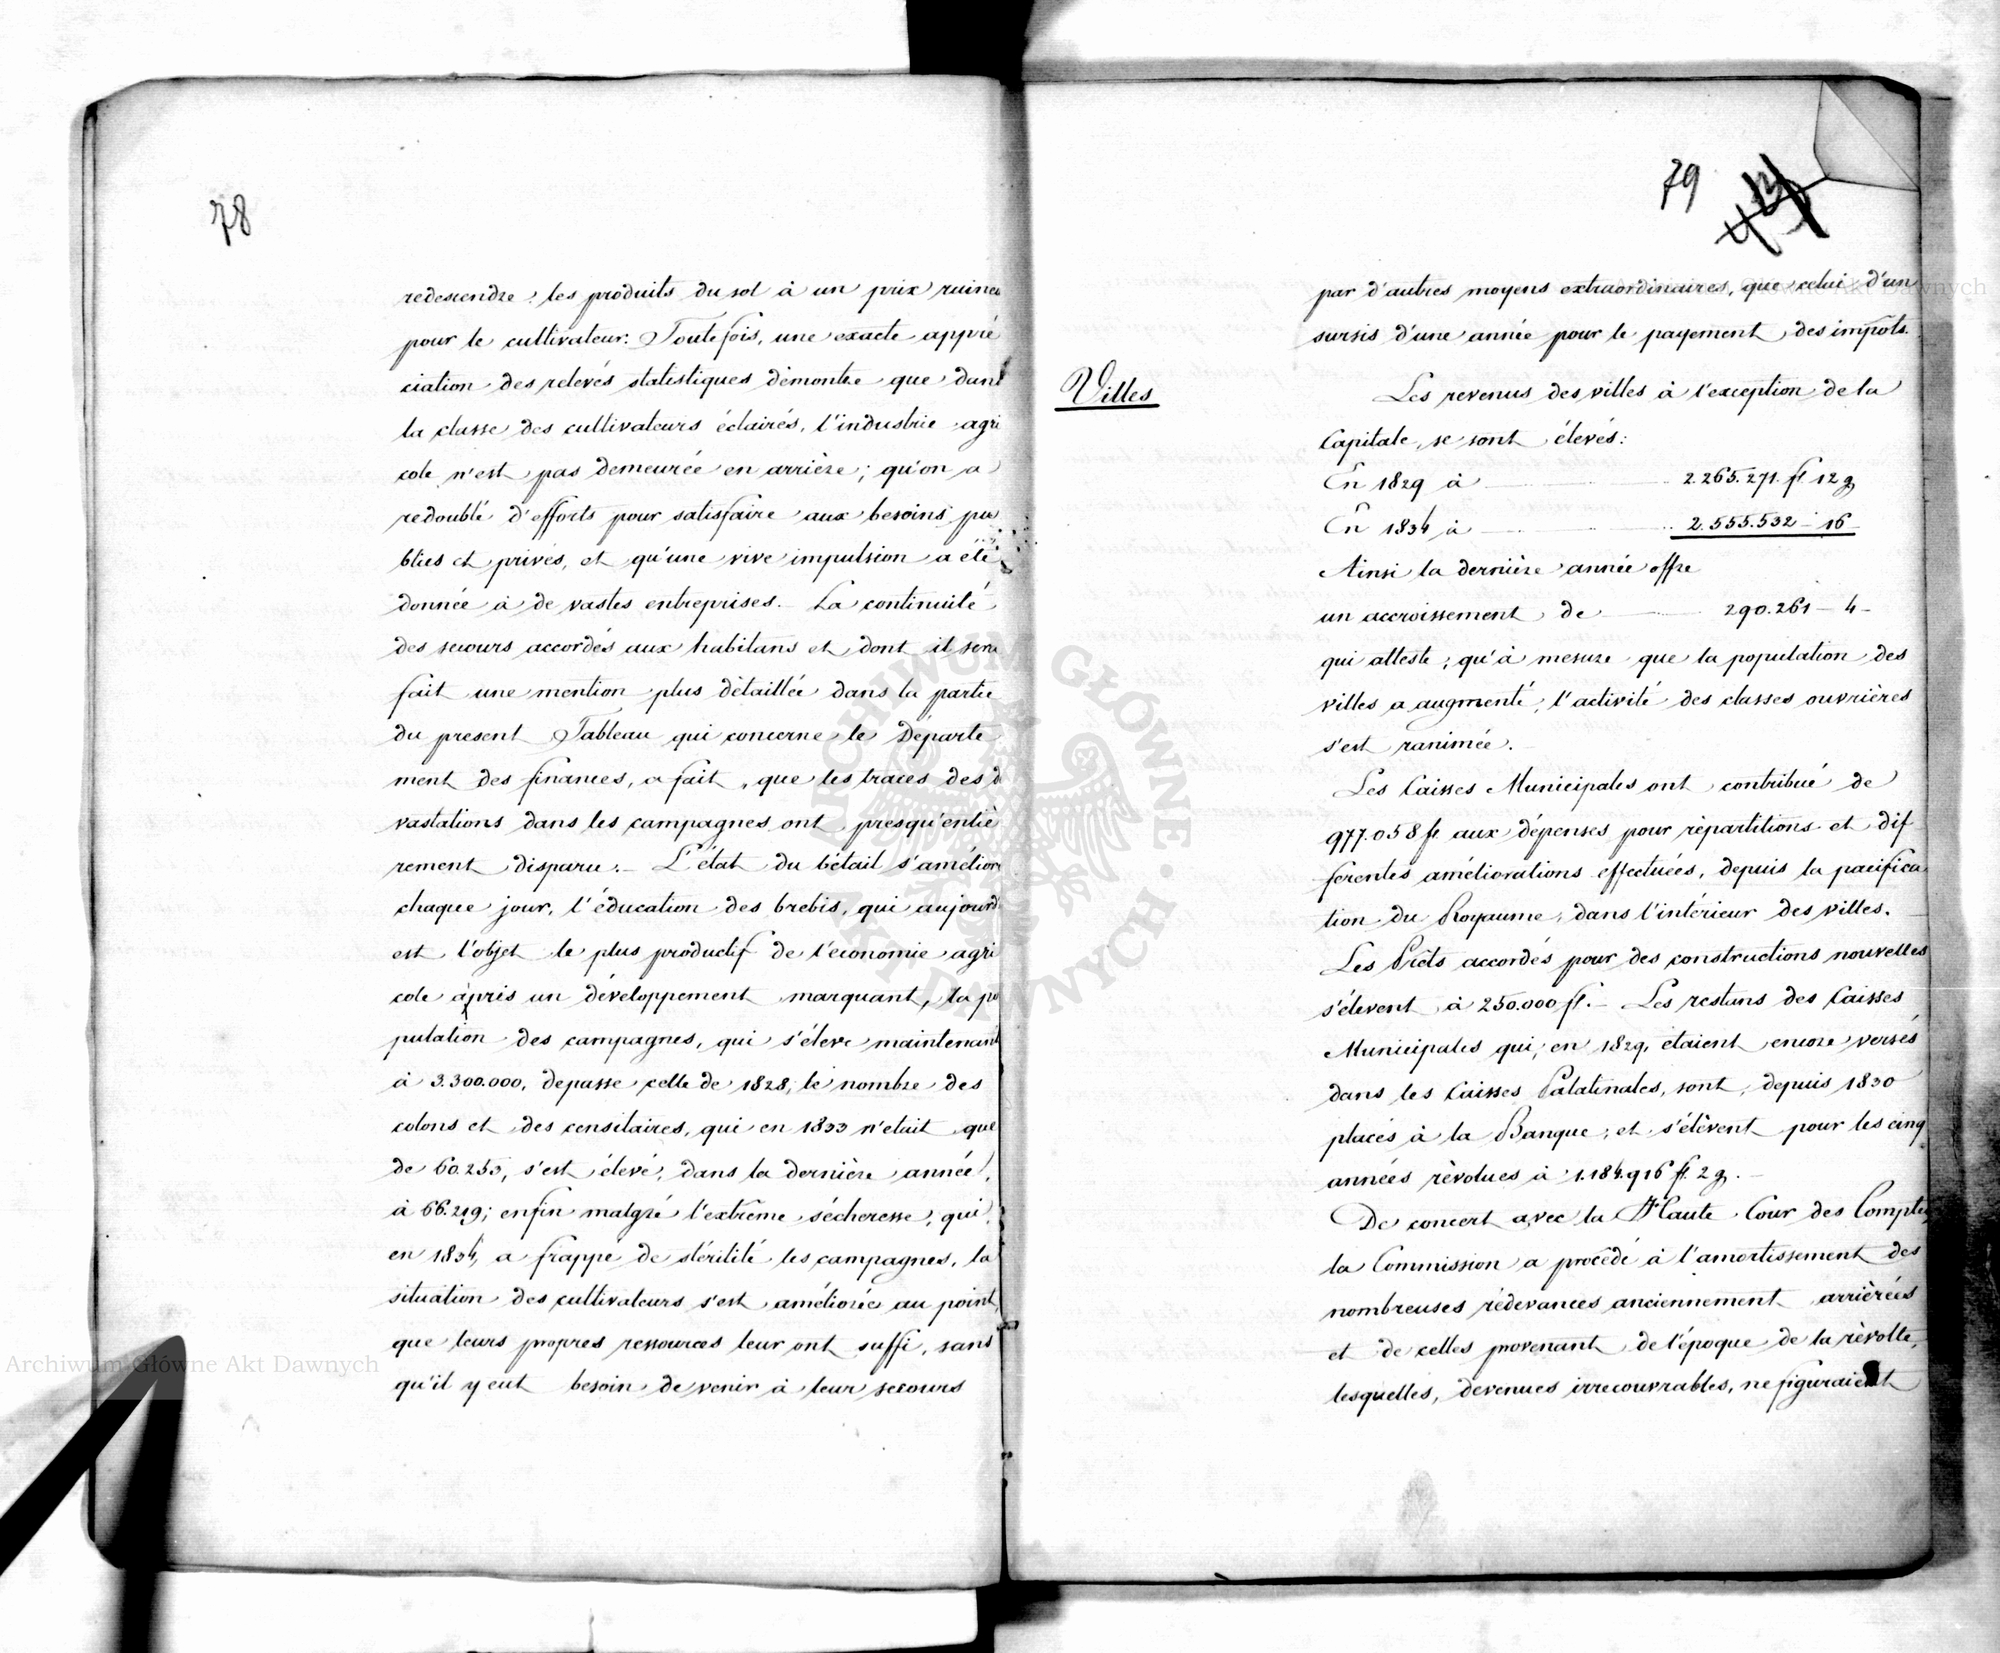 78
redescendre les produits du sol à un prix ruineu
pour le cultivateur. Toutefois, une exacte appré
ciation des relevés statistiques démontre que dans
la classe des cultivateurs éclairés, l'industrie agri
cole n'est pas demeurée en arrière; qu'on a
redoublé d'efforts pour satisfaire aux besoins pu
blics et privés, et qu'une vive impulsion a été
donnée à de vastes entreprises. La continuité
des secours accordés aux habitans et dont il sera
fait une mention plus détaillée dans la partie
du present Tableau qui concerne le Départe
ment des finances, a fait, que les traces des dé
vastations dans les campagnes ont presqu'entiè
rement disparu. L'état du bétail s'améliore
chaque jour, l'éducation des brebis, qui aujourd
est l'objet le plus productif de l'économie agri
cole a pris un développement marquant, la po
pulation des campagnes, qui s'éleve maintenant
à 3.300.000, depasse celle de 1828; le nombre des
colons et des censitaires, qui en 1833 n'etait que
de 60.253, s'est élevé, dans la dernière année,
à 66.219; enfin malgré l'extrême sécheresse, qui,
en 1834, a frappé de stérilité les campagnes, la
situation des cultivateurs s'est améliorée au point,
que leurs propres ressources leur ont suffi, sans
qu'il y eut besoin de venir à leur secours
79
par d'autres moyens extraordinaires, que celui d'un
sursis d'une année pour le payement des impôts.
Villes
Les revenus des villes à l'exception de la
Capitale, se sont élevés:
En 1829 à 2.265.271. fl 12 g
En 1834 à 2.555.532 - 16
Ainsi la dernière année offre
un accroissement de 290.261 - 4 -
qui atteste, qu'à mesure que la population des
villes a augmenté, l'activité des classes ouvrières
s'est ranimée.
Les Caisses Municipales ont contribué de
977.058 fl. aux dépenses pour répartitions et dif
ferentes améliorations effectuées, depuis la pacifica
tion du Royaume, dans l'intérieur des villes.
Les Prêts accordés pour des constructions nouvelles
s'élevent à 250.000 fl. Les restans des Caisses
Municipales qui, en 1829, étaient encore versés
dans les Caisses Palatinales, sont, depuis 1830
placés à la Banque, et s'élèvent pour les cinq
années révolues à 1.184.916 fl. 2 g.
De concert avec la Haute Cour des Comptes
la Commission a procédé à l'amortissement des
nombreuses rédevances anciennement arriérées
et de celles provenant de l'époque de la révolte,
lesquelles, devenues irrecouvrables, ne figuraient
Archiwum Główne Akt Dawnych